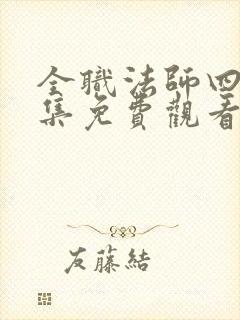 全職法師四
集免費觀看
友藤結